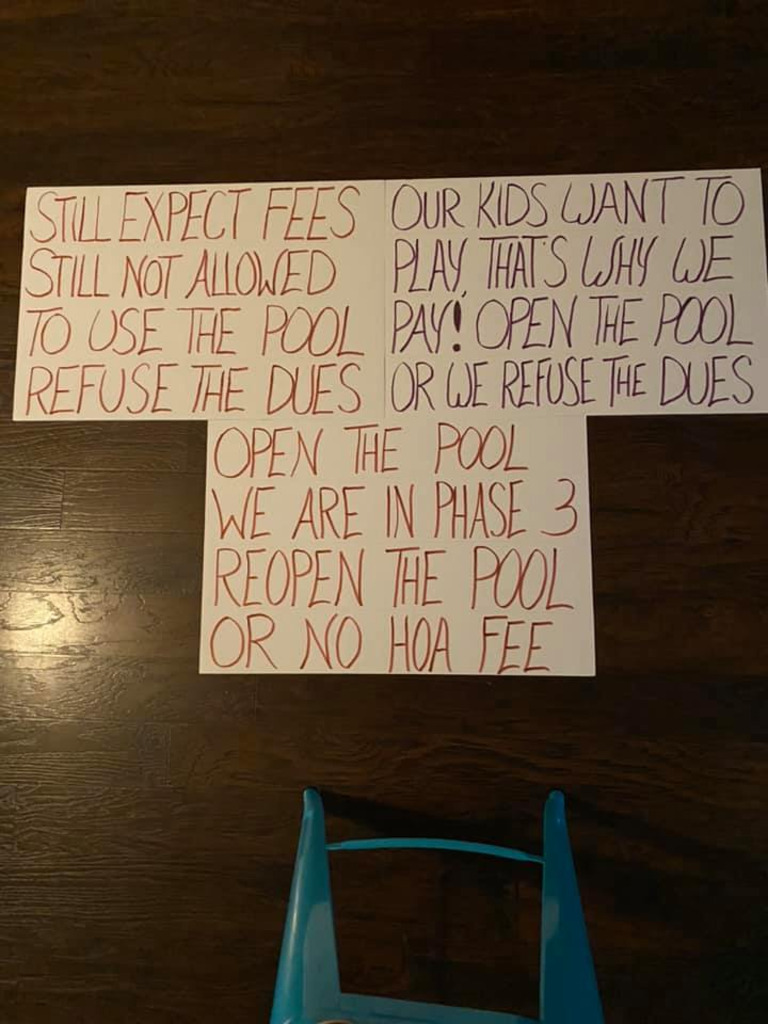 STILL EXPECT FEES
STILL NOT ALLOWED
TO USE THE POOL
REFUSE THE DUES
OUR KIDS WANT TO
PLAY, THAT'S WHY WE
PAY! OPEN THE POOL
OR WE REFUSE THE DUES
OPEN THE POOL
WE ARE IN PHASE 3
REOPEN THE POOL
OR NO HOA FEE